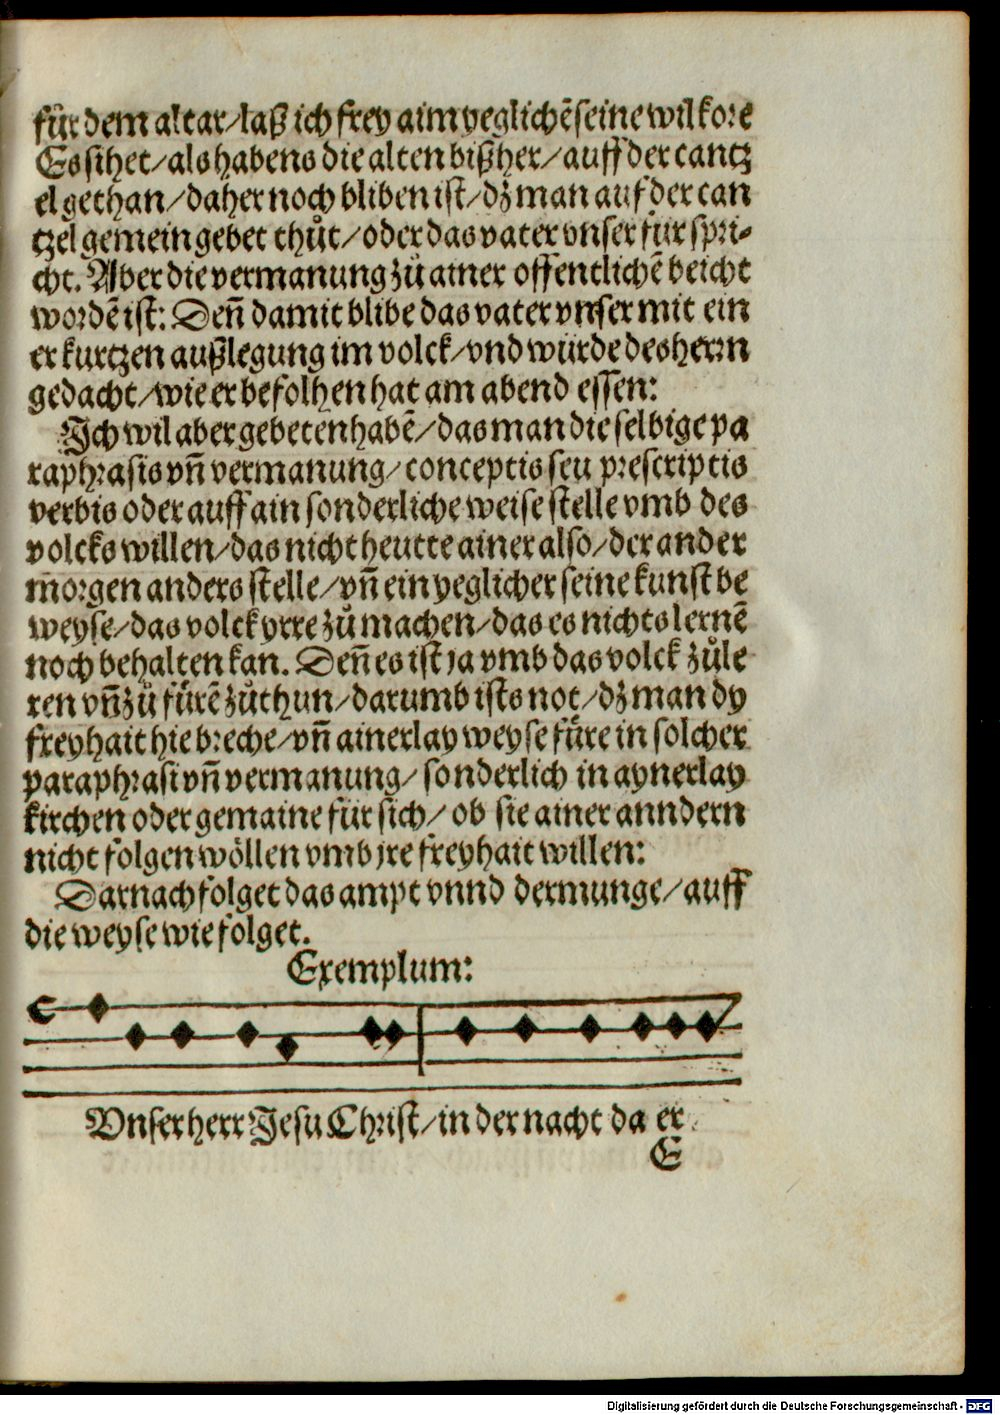 fůr dem altar/laß ich frey aim yeglichē seine wilkore
Es sihet/als habens die alten bißher/auff der cantz
el gethan/daher noch bliben ist/dz man auf der can
tzel gemein gebet thůt/oder das vater vnser fur spri-
cht. Aber die vermanung zů ainer offentlichē beicht
wordē ist: Deñ damit blibe das vater vnser mit ein
er kurtzen außlegung im volck/vnd würde des herrn
gedacht/wie er befolhen hat am abend essen:
Ich wil aber gebeten habē/das man die selbige pa
raphrasis vñ vermanung/conceptis seu prescriptis
verbis oder auff ain sonderliche weise stelle vmb des
volcks willen/das nicht heutte ainer also/der ander
m̄orgen anders stelle/vñ ein yeglicher seine kunst be
weyse/das volck yrre zů machen/das es nichts lernē
noch behalten kan. Deñ es ist ja vmb das volck zůle
ren vñ zů fůrē zůthun/darumb ists not/dz man dy
freyhait hie breche/vñ ainerlay weyse fůre in solcher
paraphrasi vñ vermanung/sonderlich in aynerlay
kirchen oder gemaine für sich/ob sie ainer anndern
nicht folgen wöllen vmb jre freyhait willen:
Darnach folget das ampt vnnd dermunge/auff
die weyse wie folget.
Exemplum:
Vnser herr Jesu Christ/in der nacht da er
E
Digitalisierung gefördert durch die Deutsche Forschungsgemeinschaft - DFG